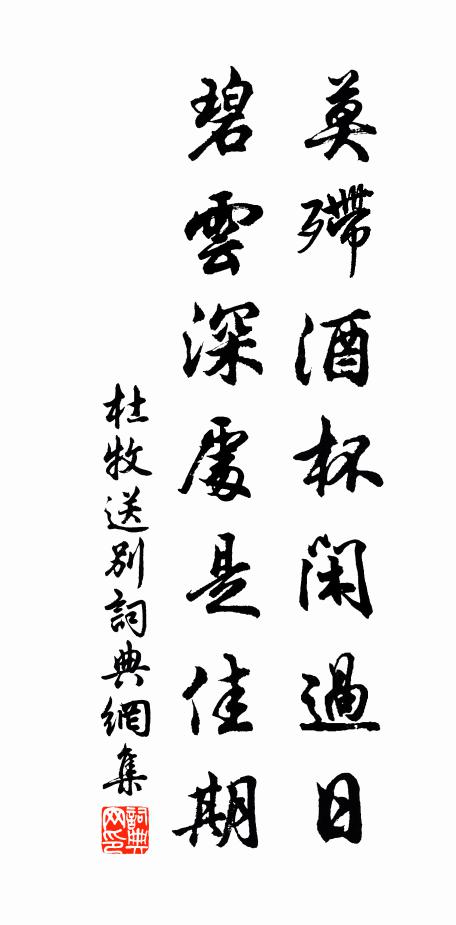 莫殢酒杯閑過日
碧雲深處是佳期
杜牧送別詞典網集
詞典網印